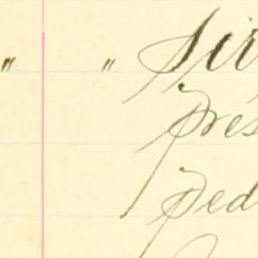 " " Sir
pres
ped